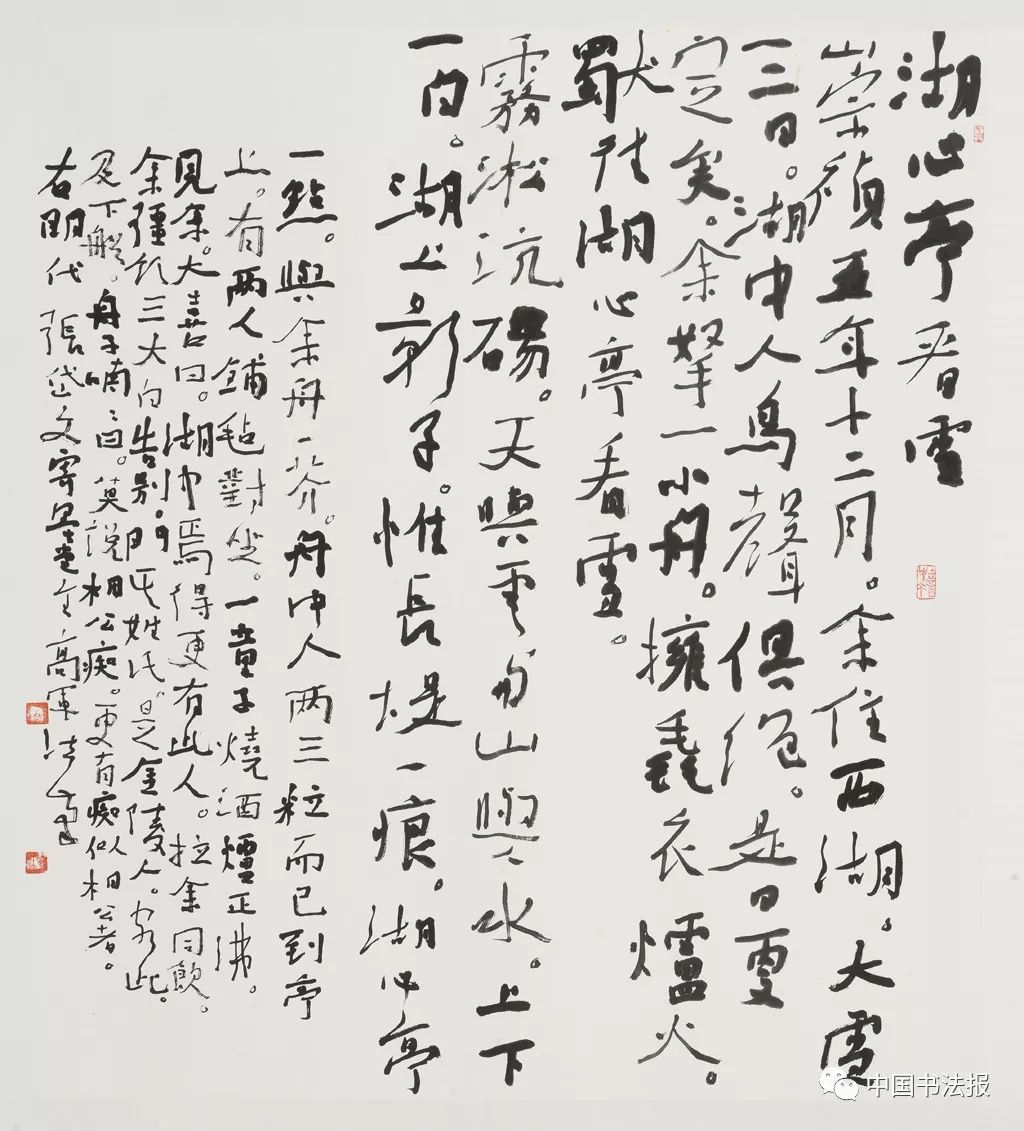 湖心亭看雪
崇禎五年十二月。余住西湖。大雪
三日。湖中人鳥聲俱絕。是日更
定矣。余拏一小舟。擁毳衣爐火。
獨往湖心亭看雪。
霧淞沆碭。天與雲與山與水。上下
一白。湖上影子。惟長堤一痕。湖心亭
一點。與余舟一芥。舟中人两三粒而已到亭
上。有两人鋪毡對坐。一童子燒酒爐正沸。
見余。大喜曰。湖中焉得更有此人。拉余同飲。
余彊飲三大白告别。問其姓氏。是金陵人。客此。
及下船。舟子喃喃曰。莫說相公癡。更有癡似相公者。
右明代張岱文寄墨堂主高軍
中国书法报